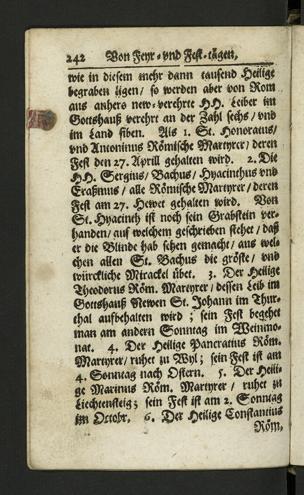 242 Von Feyr- vnd Fest-tägen,
wie in diesem mehr dann tausend Heilige
begraben ligen/ so werden aber von Rom
aus anhero new-verehrte HH. Leiber im
Gottshauß verehrt an der Zahl sechs/ vnd
im Land siben. Als 1. St. Honoratus/
vnd Antoninus Römische Martyrer/ deren
Fest den 27. Aprill gehalten wird. 2. Die
HH. Sergius/ Bachus/ Hyacinthus vnd
Eraßmus/ alle Römische Martyrer/ deren
Fest am 27. Hewet gehalten wird. Von
St. Hyacinth ist noch sein Grabstein ver-
handen/ auf welchem geschrieben stehet/ daß
er die Blinde hab sehen gemacht/ aus wel-
chen allen St. Bachus die gröste/ vnd
würckliche Mirackel übet. 3. Der Heilige
Theodorus Röm. Martyrer/ dessen Leib im
Gottshauß Newen St. Johann im Thur-
thal aufbehalten wird; sein Fest begehet
man am andern Sonntag im Weinmo-
nat. 4. Der Heilige Pancratius Röm.
Martyrer/ ruhet zu Wyl; sein Fest ist am
4. Sonntag nach Ostern. 5. Der Heili-
ge Marinus Röm. Martyrer/ ruhet zu
Liechtensteig; sein Fest ist am 2. Sonntag
im Octobr. 6. Der Heilige Constantius
Röm,